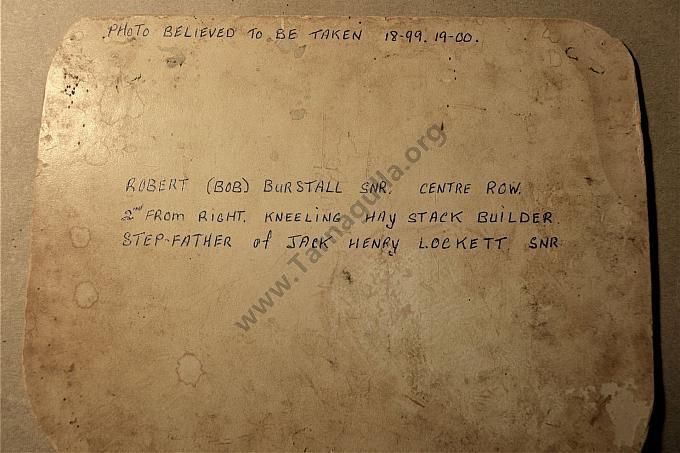 PHOTO BELIEVED TO BE TAKEN 18-99. 19-00.
ROBERT (BOB) BURSTALL SNR. CENTRE ROW.
2nd FROM RIGHT. KNEELING HAY STACK BUILDER
STEP-FATHER of JACK HENRY LOCKETT SNR
www.Tarnagulla.org